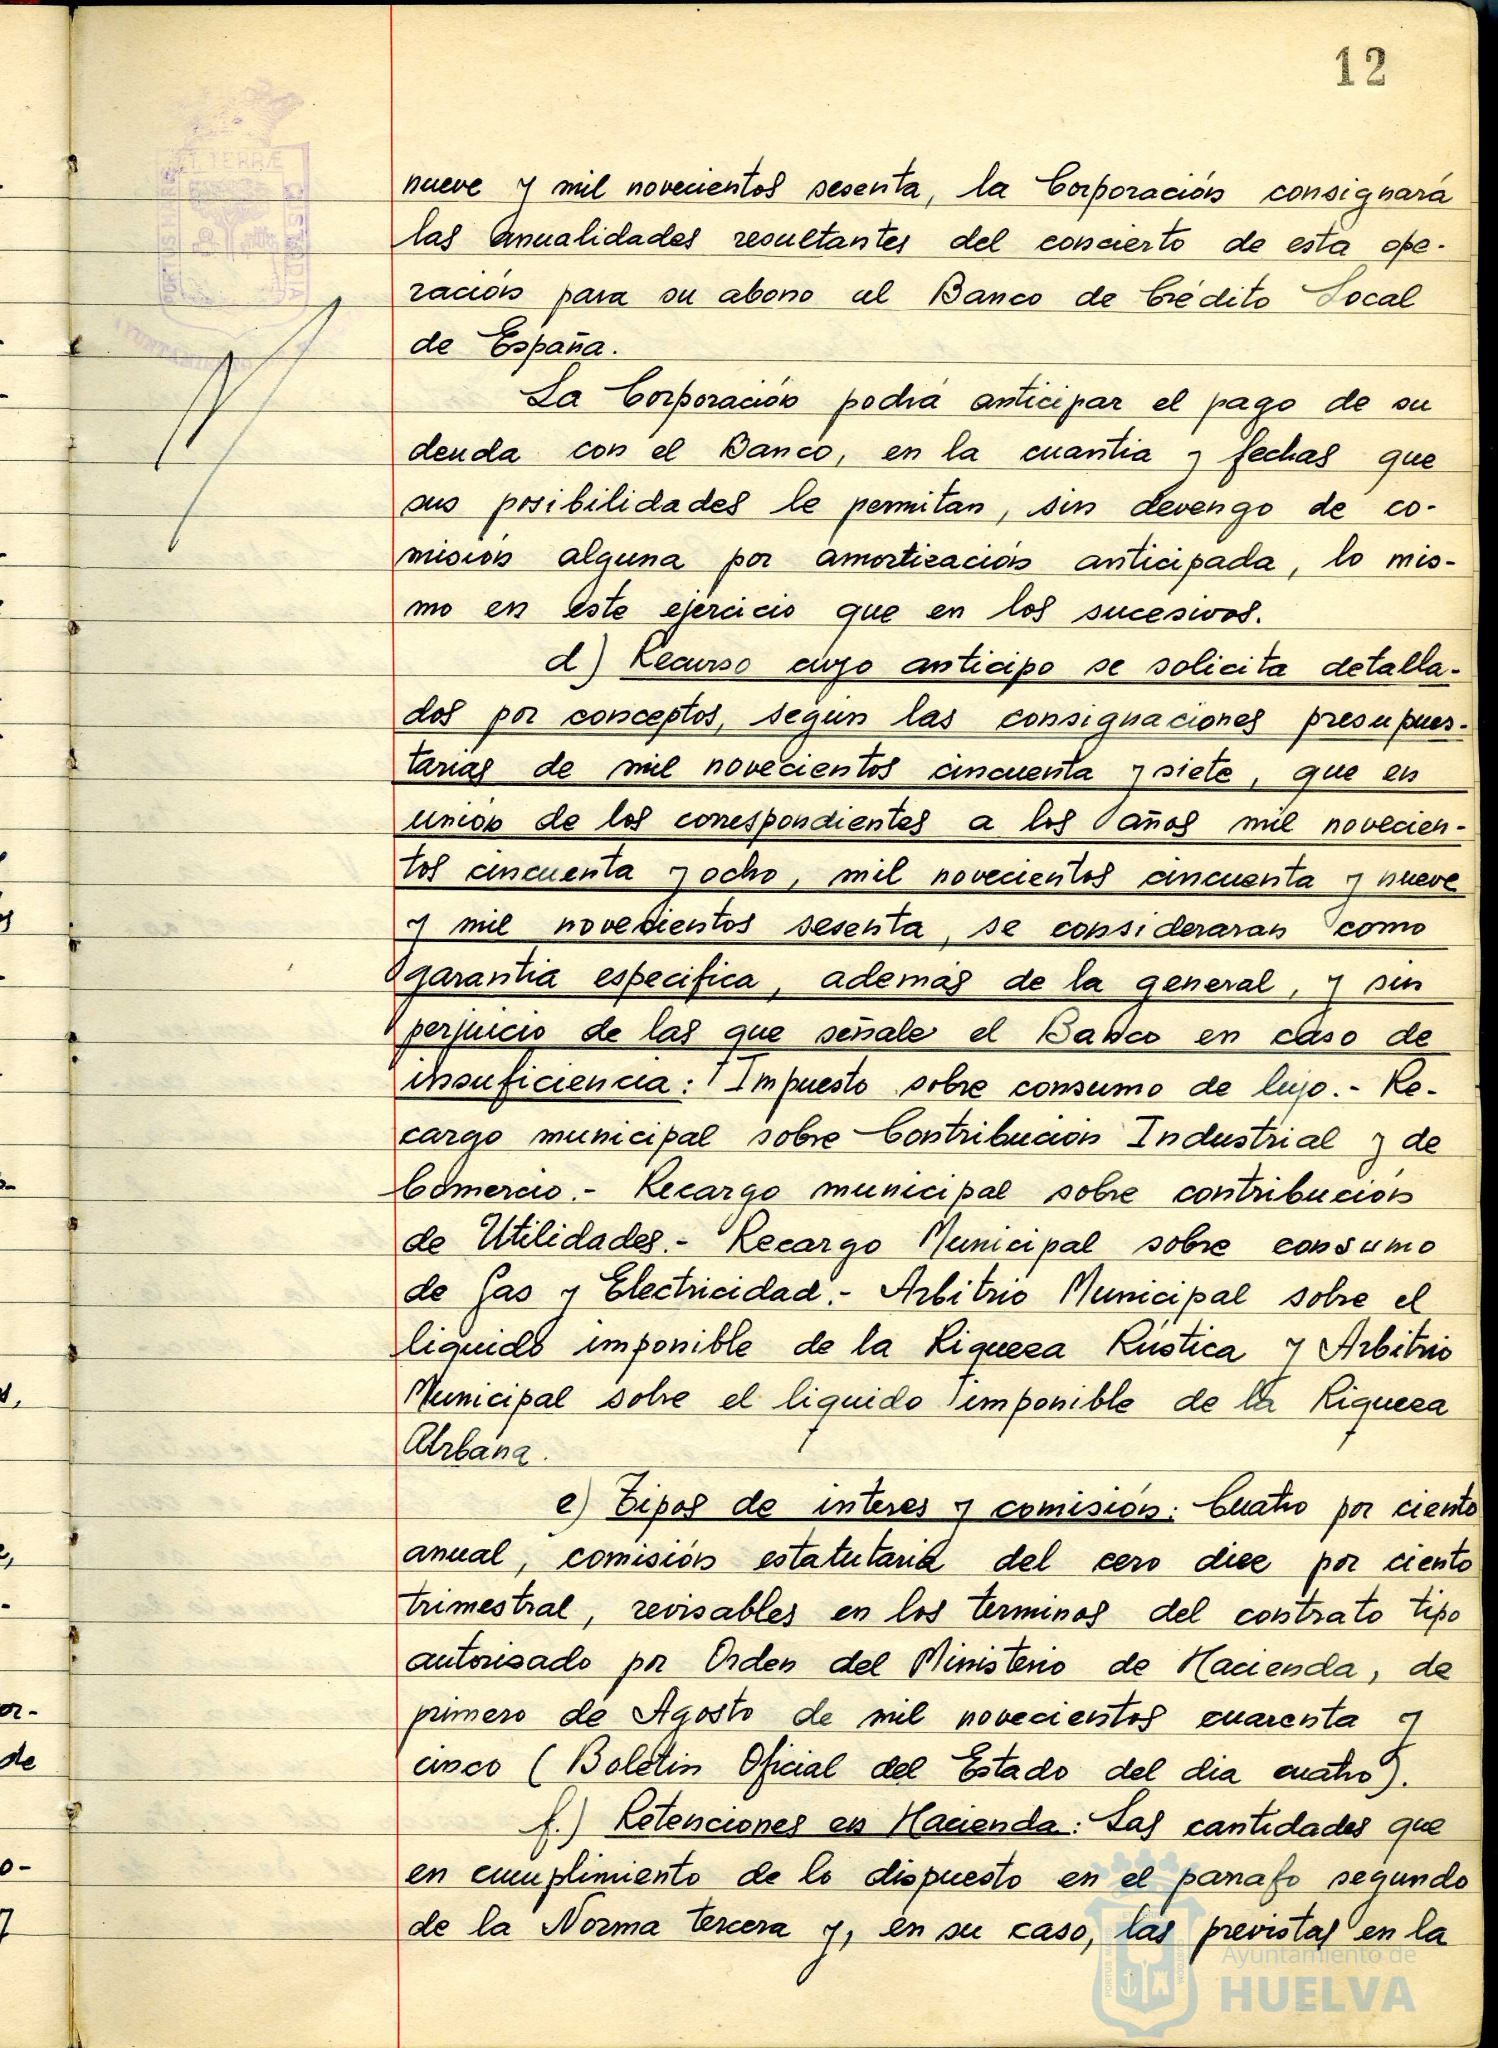 12
nueve y mil novecientos sesenta, la Corporación consignará
las anualidades resultantes del concierto de esta ope-
ración para su abono al Banco de Crédito Local
de España.
La Corporación podrá anticipar el pago de su
deuda con el Banco, en la cuantia y fechas que
sus posibilidades le permitan, sin devengo de co-
misión alguna por amortización anticipada, lo mis-
mo en este ejercicio que en los sucesivos.
d) Recurso cuyo anticipo se solicita detalla-
dos por conceptos, según las consignaciones presupues-
tarias de mil novecientos cincuenta y siete, que en
unión de los correspondientes a los años mil novecien-
tos cincuenta y ocho, mil novecientos cincuenta y nueve
y mil novecientos sesenta, se consideraran como
garantia especifica, además de la general, y sin
perjuicio de las que señale el Banco en caso de
insuficiencia: Impuesto sobre consumo de lujo.- Re-
cargo municipal sobre Contribución Industrial y de
Comercio.- Recargo municipal sobre contribución
de Utilidades.- Recargo Municipal sobre consumo
de Gas y Electricidad.- Arbitrio Municipal sobre el
liquido imponible de la Riqueza Rústica y Arbitrio
Municipal sobre el liquido imponible de la Riqueza
Urbana.
e) Tipos de interes y comisión: Cuatro por ciento
anual, comisión estatutaria del cero diez por ciento
trimestral, revisables en los terminos del contrato tipo
autorizado por Orden del Ministerio de Hacienda, de
primero de Agosto de mil novecientos cuarenta y
cinco (Boletin Oficial del Estado del dia cuatro).
f.) Retenciones en Hacienda: Las cantidades que
en cumplimiento de lo dispuesto en el parrafo segundo
de la Norma tercera y, en su caso, las previstas en la
PORTUS MARIS
ET TERRÆ
CUSTODIA
AYUNTAMIENTO
Ayuntamiento de
HUELVA